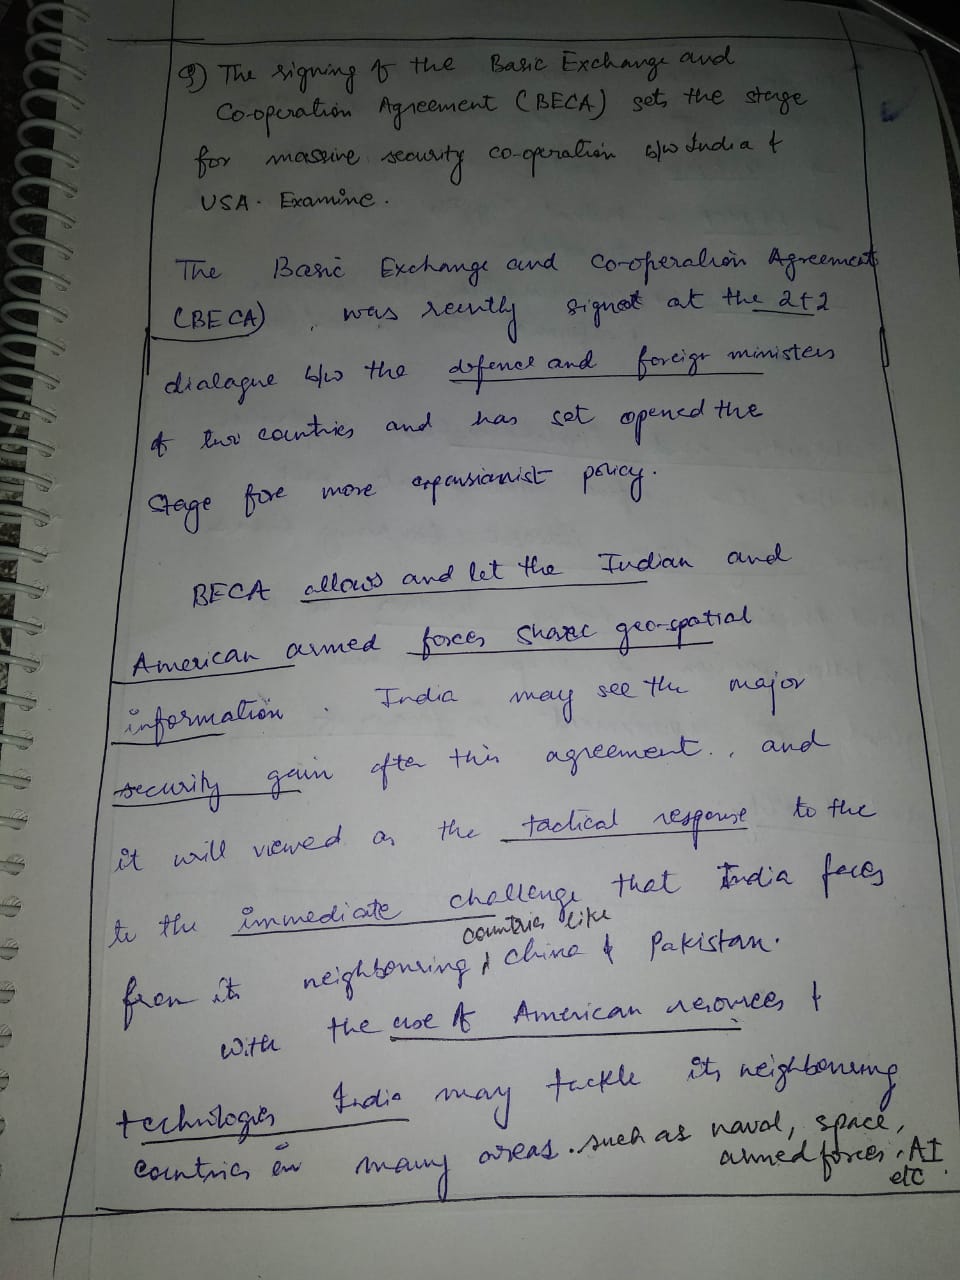 Q) The signing of the Basic Exchange and
Co-operation Agreement (BECA) sets the stage
for massive security co-operation b/w India &
USA. Examine.
The Basic Exchange and Co-operation Agreement
(BECA), was recently signed at the 2+2
dialague b/w the defence and foreign ministers
of two countries and has set opened the
stage fore more expansionist policy.
BECA allows and let the Indian and
American armed forces share geo-spatial
information. India may see the major
security gain after this agreement., and
it will viewed as the tactical response to the
to the immediate challenge that India faces
countries like
from its neighbouring China & Pakistan.
With the use of American resources &
technologies India may tackle its neighbouring
countries in many areas. such as naval, space,
armed forces, AI
etc.